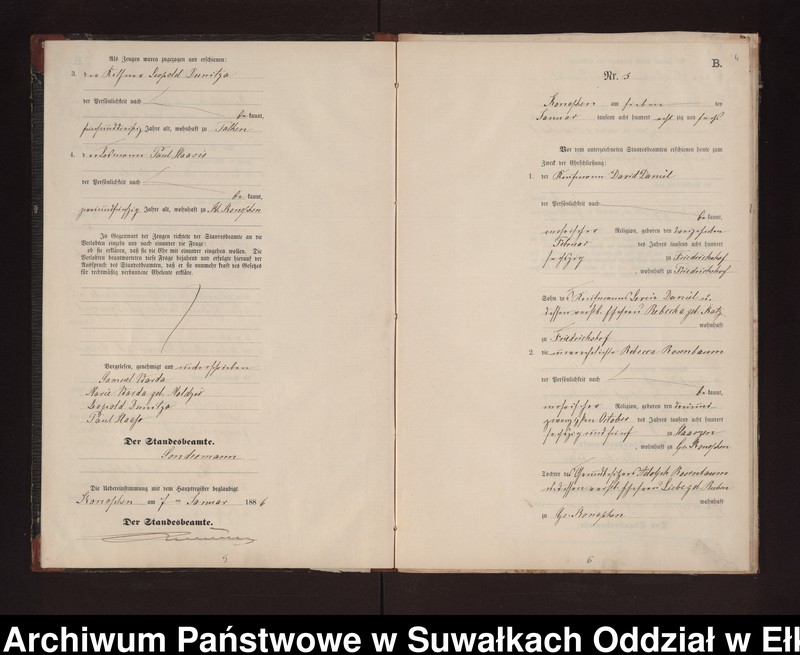 Als Zeugen waren zugezogen und erschienen:
3. der Leopold Dunitza
der Persönlichkeit nach
be kannt,
Jahre alt, wohnhaft zu Talken
4. der Paul
der Persönlichkeit nach
be kannt,
Jahre alt, wohnhaft zu Kl. Konopken
In Gegenwart der Zeugen richtete der Standesbeamte an die
Verlobten einzeln und nach einander die Frage:
ob sie erklären, daß sie die Ehe mit einander eingehen wollen. Die
Verlobten beantworteten diese Frage bejahend und erfolgte hierauf der
Ausspruch des Standesbeamten, daß er sie nunmehr kraft des Gesetzes
für rechtmäßig verbundene Eheleute erkläre.
Vorgelesen, genehmigt und unterschrieben
Samuel Barda
Marie Barda geb.
Leopold Dunitza
Paul
Der Standesbeamte.
Sondermann
Die Uebereinstimmung mit dem Hauptregister beglaubigt
Konopken am 7 ten Januar 1886
Der Standesbeamte.
5
B.
Nr. 5
Konopken am sieben ten
Januar tausend acht hundert acht zig und sechs
Vor dem unterzeichneten Standesbeamten erschienen heute zum
Zweck der Eheschließung:
1. der Kaufmann David Daniel
der Persönlichkeit nach
be kannt,
mosaischer Religion, geboren den
Februar des Jahres tausend acht hundert
sechszig zu Friedrichshof
, wohnhaft zu Friedrichshof
Sohn des Kaufmanns Daniel u.
dessen Ehefrau Rebecka geb. Katz
wohnhaft
zu Friedrichshof
2. die unverehelichte Rebecca Rosenbaum
der Persönlichkeit nach
be kannt,
mosaischer Religion, geboren den dreiund
zwanzigsten October des Jahres tausend acht hundert
sechszig und fünf zu
, wohnhaft zu Gr. Konopken
Tochter des Grundbesitzers Adolph Rosenbaum
u. dessen Ehefrau geb.
wohnhaft
zu Gr. Konopken
6
Archiwum Państwowe w Suwałkach Oddział w Ełk